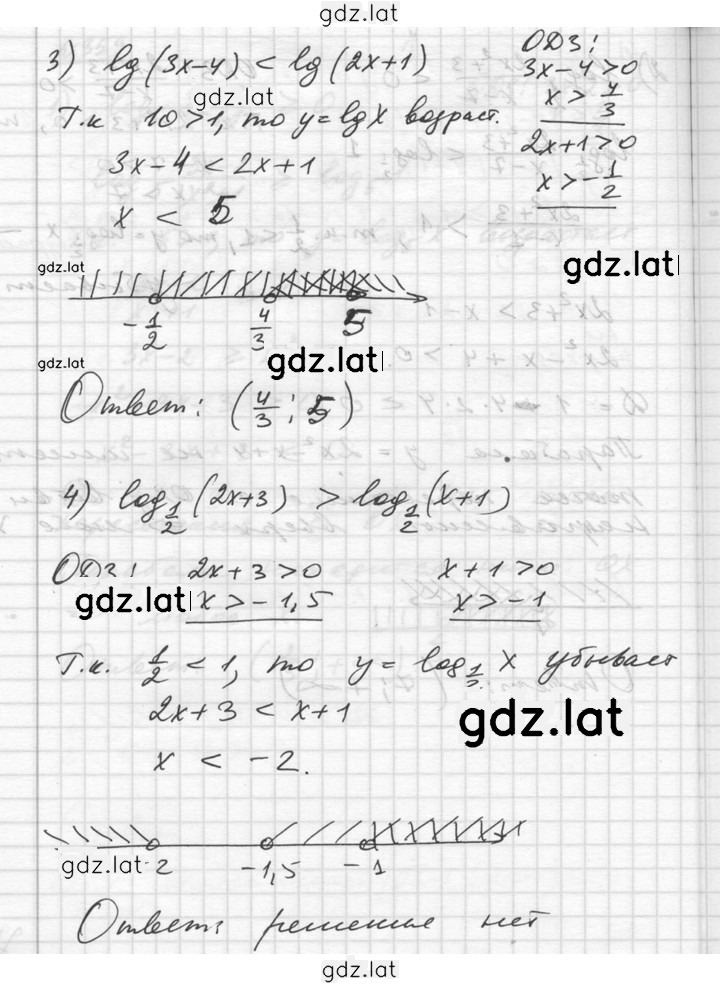 gdz.lat
3) lg(3x-4) < lg(2x+1)
ОДЗ:
3x-4>0
gdz.lat
x > 4/3
Т.к 10>1, то y=lgx возраст.
2x+1>0
3x-4 < 2x+1
x > -1/2
x < 5
gdz.lat
gdz.lat
-1/2 4/3 5
gdz.lat
gdz.lat
Ответ: (4/3; 5)
4) log_{1/2}(2x+3) > log_{1/2}(x+1)
ОДЗ: 2x+3>0 x+1>0
gdz.lat x>-1,5 x>-1
Т.к. 1/2 < 1, то y = log_{1/2} x убывает
2x+3 < x+1
gdz.lat
x < -2.
gdz.lat -2 -1,5 -1
Ответ: решение нет
gdz.lat